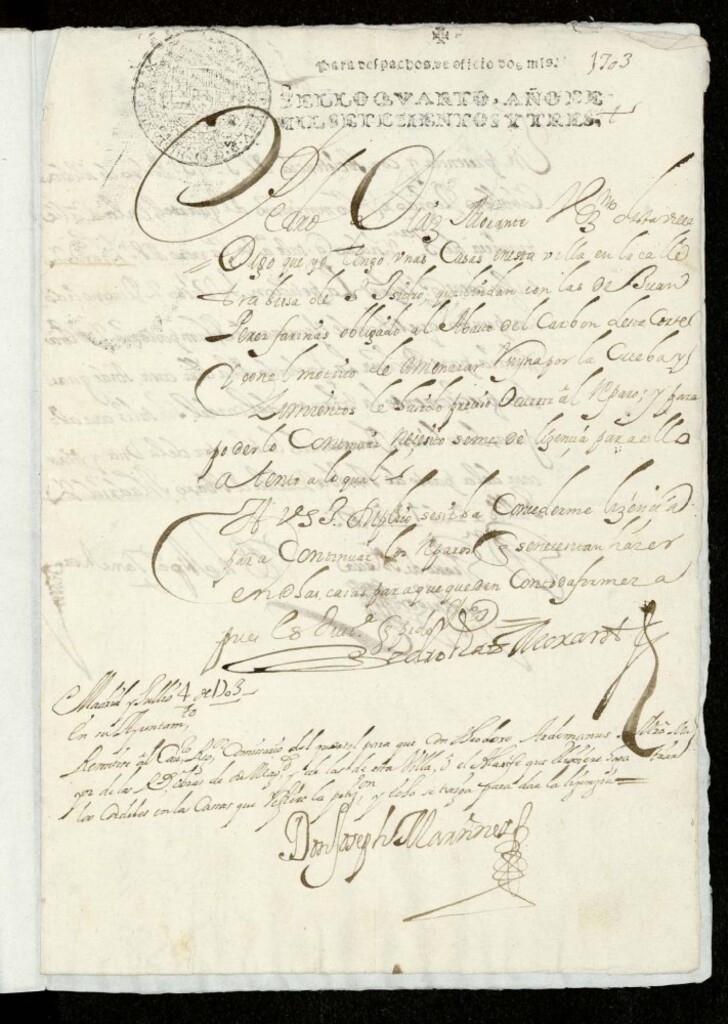 Para despachos de oficio dos mrs.
1703
SELLO QVARTO, AÑO DE
MIL SETECIENTOS Y TRES.
Pedro Diaz Morante Vezno desta villa
Digo que yo tengo unas Casas enesta villa, en la calle
trabiesa de S Isidro, que lindan con las de Juan
Perez farinas obligado al Abasto del Carbon desta Corte
Y con el motibo de amenazar Ruyna por la Cueba y
Zimientos le a sido preciso Ocurrir al Reparo; y para
poderlo Continuar Nezesito se me de lizencia para ello
atento a lo qual
A V.S.I. Suplico se sirba Concederme lizencia
para Continuar los Reparos q se nezesitan hazer
en dhas casas para que queden Con toda firmeza
pues es Just.a q pido
Pedro Diaz Morante
Madrid y Jullio 4 de 1703
En su Ayuntamto
Remitese al Cauo Rexor Comisario del quartel para que Don Theodoro Ardemanus Mro Ma
yor de las Obras de su Magd y de las de esta Villa, o el Alarife que
en las Cassas que refiere la peton y todo se traiga para dar la lizencia
Don Joseph Martinez